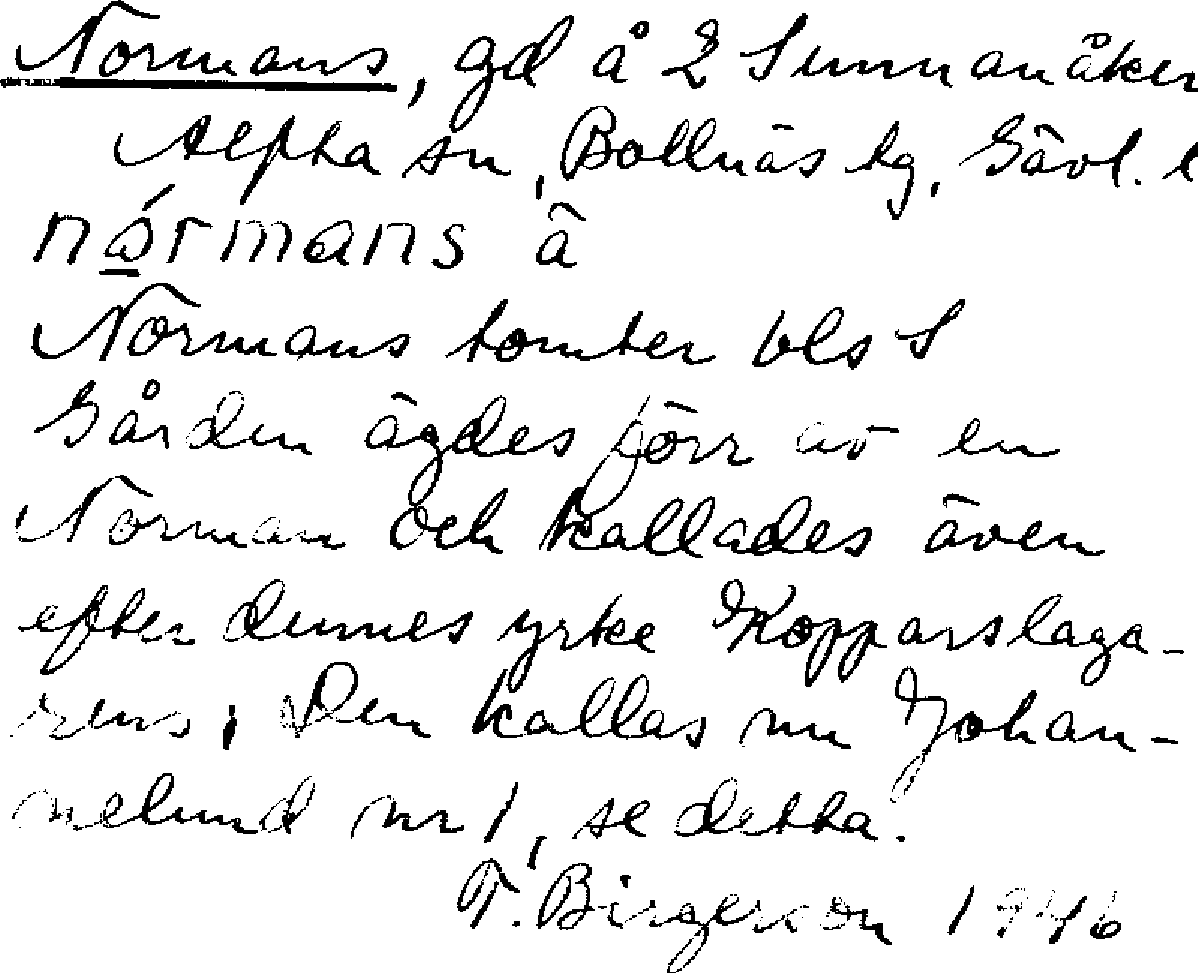 Normans, gd å 2 Sunnanåker
Alfta sn, Bollnäs tg, Gävl. l
nórmans â
Normans tomter bls S
Gården ägdes förr av en
Norman och kallades även
efter dennes yrke Kopparslaga-
rens. Den kallas nu Johan-
nelund nr 1, se detta.
T. Birgerson 1946